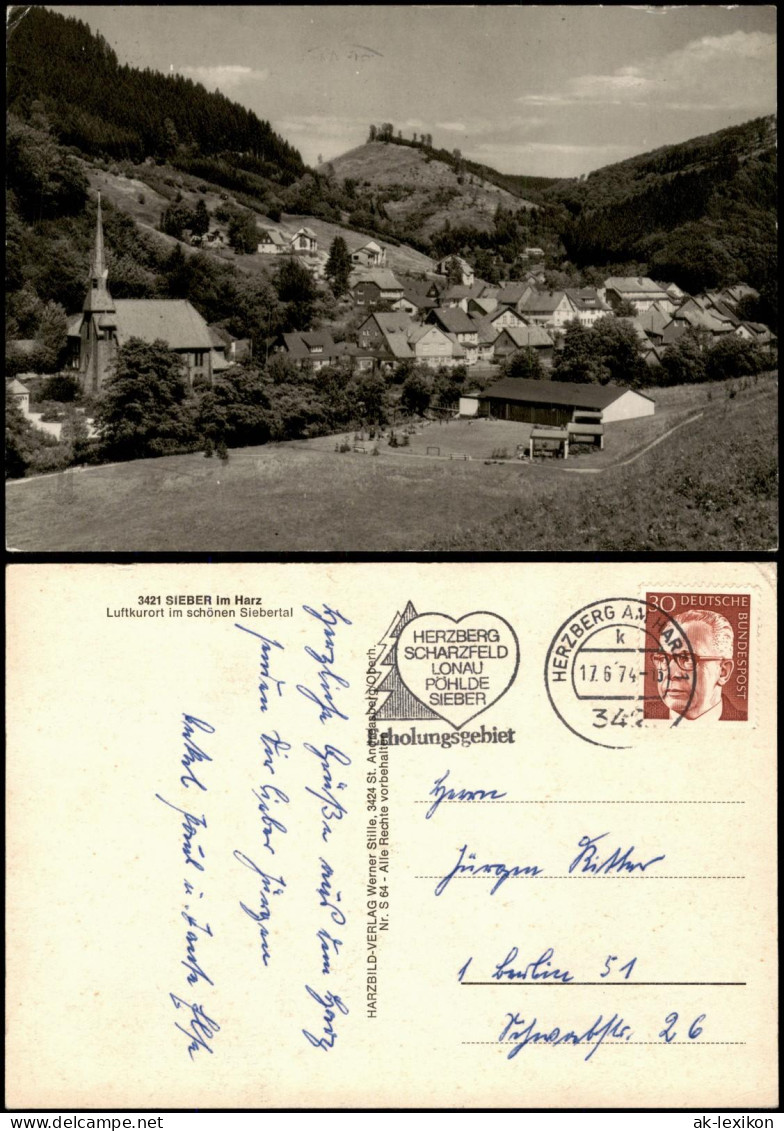 3421 SIEBER im Harz
Luftkurort im schönen Siebertal
Herzliche Grüße aus dem Harz
senden Dir lieber Jürgen
Onkel Paul u. Tante Else
HARZBILD-VERLAG Werner Stille, 3424 St. Andreasberg/Oberh.
Nr. S 64 - Alle Rechte vorbehalten
HERZBERG
SCHARZFELD
LONAU
PÖHLDE
SIEBER
Erholungsgebiet
HERZBERG AM HARZ
k
17.6.74
342
30 DEUTSCHE
BUNDESPOST
Herrn
Jürgen Ritter
1 Berlin 51
Schwabstr. 26
oldthing
ak-lexikon